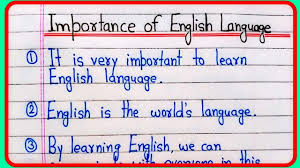 Importance of English Language
① It is very important to learn
English language.
② English is the world's language.
③ By learning English, we can
with everyone in this